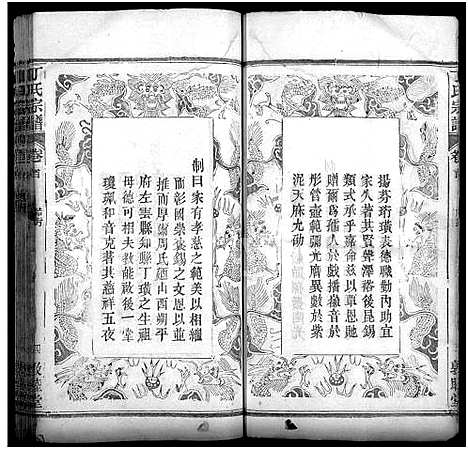 丁氏宗譜
卷首
制曰家有孝慈之範美以相繼
而彰國崇褒錫之文恩以並
推而厚爾周氏廼山西朔平
府左雲縣知縣丁璜之生祖
母德可相夫教能啟後一堂
瓊珮和音克著其慈祥五夜
揚芬珩璜表德職勤內助宜
家久著其賢聲澤裕後昆錫
類式承乎嘉命兹以覃恩貤
贈爾為孺人於戲播徽音於
彤管壼範彌光膺異數於紫
泥天庥允劭
丁氏宗譜
卷首